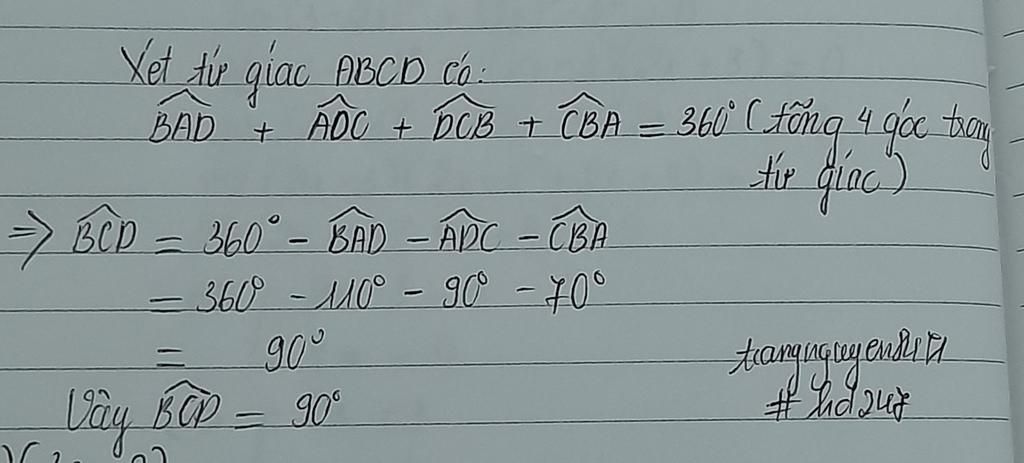 Xét tứ giác ABCD có:
BAD + ADC + DCB + CBA = 360° (tổng 4 góc trong
tứ giác)
=> BCD = 360° - BAD - ADC - CBA
= 360° - 110° - 90° - 70°
= 90°
Vậy BCD = 90°
# hd247